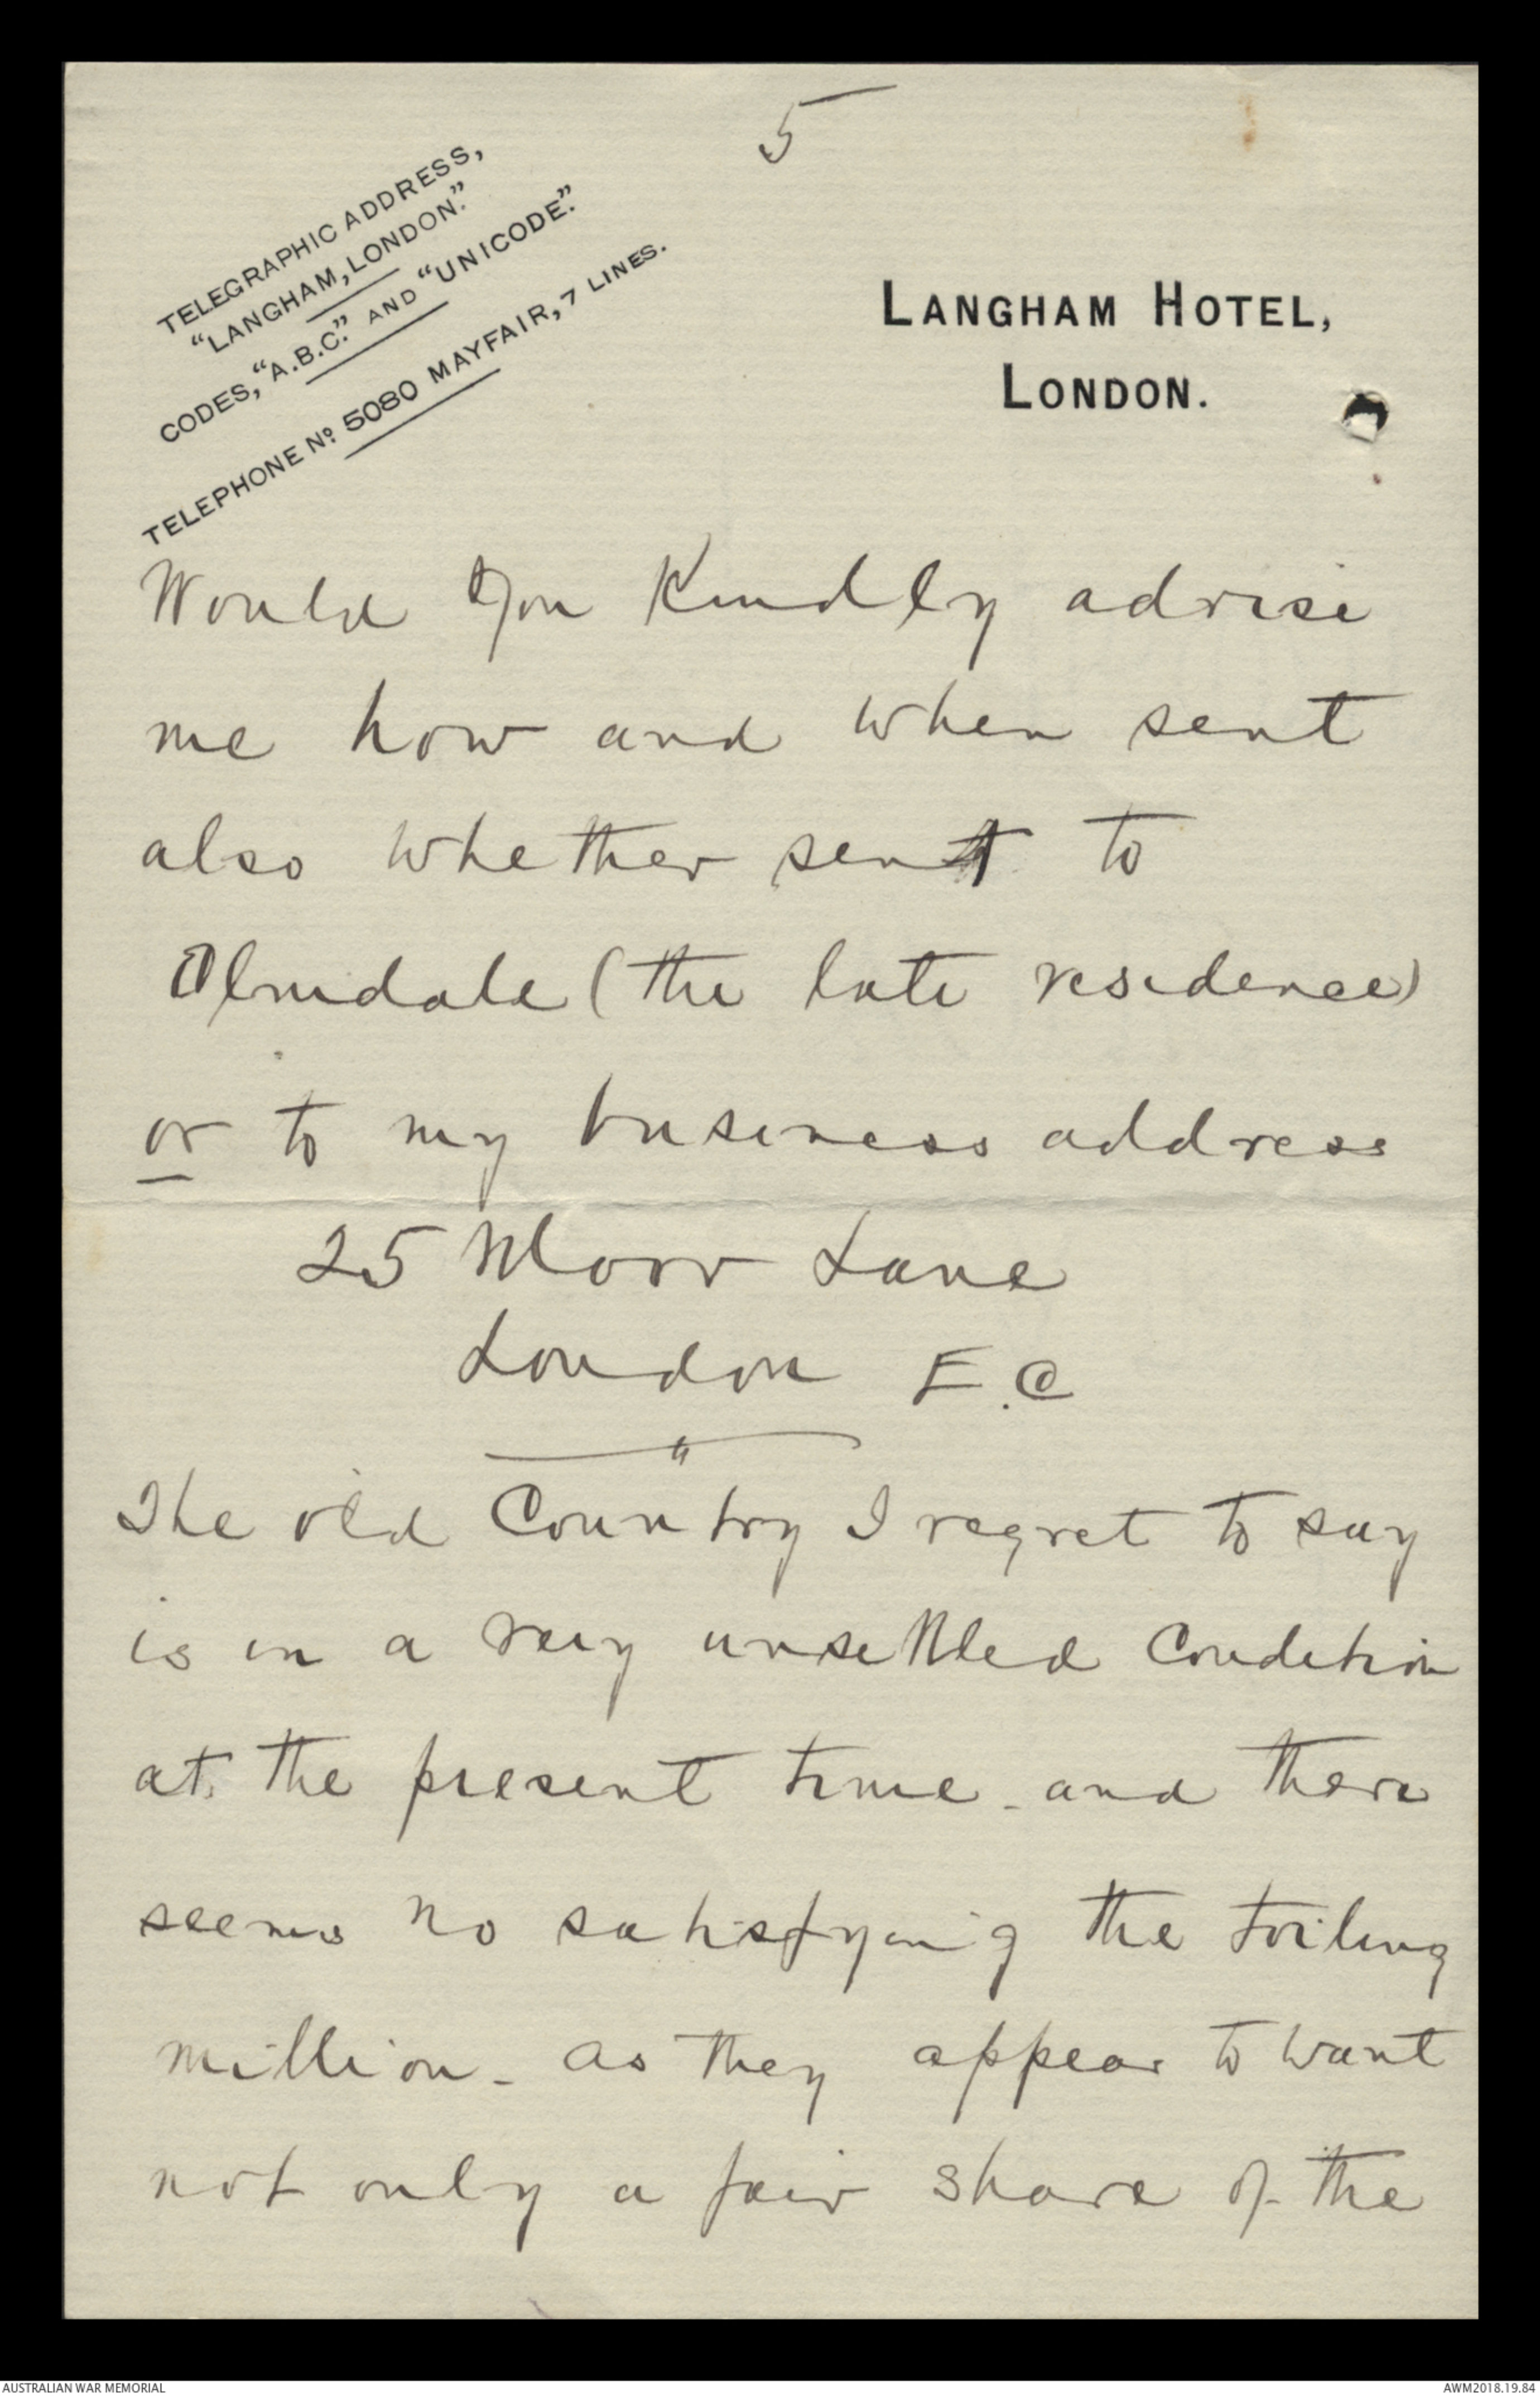 5
TELEGRAPHIC ADDRESS,
"LANGHAM, LONDON."
CODES, "A.B.C." AND "UNICODE."
TELEPHONE No. 5080 MAYFAIR, 7 LINES.
LANGHAM HOTEL,
LONDON.
Would you Kindly advise
me how and when sent
also whether sent to
(the late residence)
or to my business address
25 Moor Lane
London E.C
The old Country I regret to say
is in a very unsettled Condition
at the present time - and there
seems no satisfying the toiling
million - as they appear to want
not only a fair share of the
AUSTRALIAN WAR MEMORIAL
AWM2018.19.84